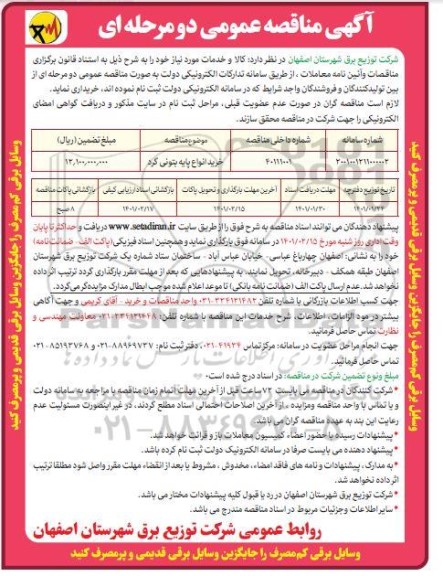 آگهی مناقصه عمومی دو مرحله ای
شرکت توزیع برق شهرستان اصفهان در نظر دارد: کالا و خدمات مورد نیاز خود را به شرح ذیل به استناد قانون برگزاری
مناقصات و آئین نامه معاملات ، از طریق سامانه تدارکات الکترونیکی دولت به صورت مناقصه عمومی دو مرحله ای از
بین تولیدکنندگان و فروشندگان واجد شرایط که در سامانه الکترونیکی دولت ثبت نام نموده اند، خریداری نماید.
لازم است مناقصه گران در صورت عدم عضویت قبلی، مراحل ثبت نام در سایت مذکور و دریافت گواهی امضای
الکترونیکی را جهت شرکت در مناقصه محقق سازند.
شماره سامانه شماره داخلی مناقصه موضوع مناقصه مبلغ تضمین (ریال)
۴۰۱۱۱۰۰۱ خرید انواع پایه بتونی گرد ۱۳,۱۰۰,۰۰۰,۰۰۰
تاریخ توزیع دفترچه مهلت دریافت اسناد آخرین مهلت بارگذاری و تحویل پاکات بازگشائی اسناد ارزیابی کیفی بازگشائی پاکات مناقصه
۱۴۰۱/۰۱/۳۰ ۱۴۰۱/۰۲/۱۵ ۱۴۰۱/۰۲/۱۷ ۸ صبح
پیشنهاد دهندگان می توانند اسناد مناقصه به شرح فوق را از طریق سایت www.setadiran.ir دریافت و حداکثر تا پایان
وقت اداری روز شنبه مورخ ۱۴۰۱/۰۲/۱۵ در سامانه فوق بارگذاری نماید و همچنین اسناد فیزیکی (پاکت الف - ضمانت نامه)
خود را به نشانی: اصفهان چهارباغ عباسی- خیابان عباس آباد - ساختمان ستاد شماره یک شرکت توزیع برق شهرستان
اصفهان طبقه همکف - دبیرخانه، تحویل نمایند. به پیشنهادهایی که بعد از مهلت مقرر بارگذاری گردد ترتیب اثر داده
نخواهد شد. عدم ارسال پاکت الف (ضمانت نامه بانکی) تا موعد اعلام شده موجب ابطال مدارک مزایده گر می گردد.
جهت کسب اطلاعات بازرگانی با شماره تلفن ۳۲۲۴۱۲۱۴۸۲-۰۳۱ واحد مناقصات و خرید - آقای کریمی و جهت آگاهی
بیشتر در مورد الزامات ، اطلاعات، شرح خدمات این مناقصه با شماره تلفن: معاونت مهندسی و
نظارت تماس حاصل فرمائید.
جهت انجام مراحل عضویت در سامانه: مرکز تماس ۴۱۹۳۴-۰۲۱ دفتر ثبت نام: ۸۸۹۶۹۷۳۷-۰۲۱ و ۸۵۱۹۳۷۶۸-۰۲۱
تماس حاصل فرمائید.
مبلغ و نوع تضمین شرکت در مناقصه: در اسناد درج شده است.
* شرکت کنندگان در مناقصه می بایست ۷۲ ساعت قبل از آخرین مهلت اتمام زمان مناقصه با مراجعه به سامانه دولت
و یا تماس با واحد مناقصه و مزایده ، از آخرین اصلاحات احتمالی اسناد مطلع گردند، در غیر اینصورت مسئولیت عدم
رعایت این بند به عهده مناقصه گران می باشد.
* پیشنهادات رسیده با حضور اعضاء کمیسیون معاملات، باز و قرائت خواهد شد.
* پیشنهاد دهنده می بایست صرفا در سامانه الکترونیک دولت ثبت نام کرده باشد.
* به مدارک ، پیشنهادات و نامه های فاقد امضاء ، مخدوش ، مشروط یا بعد از انقضاء مهلت مقرر واصل شود مطلقا ترتیب
اثر داده نخواهد شد.
* شرکت توزیع برق شهرستان اصفهان در رد یا قبول کلیه پیشنهادات مختار می باشد.
* سایر اطلاعات و جزئیات مربوط در اسناد مناقصه مندرج می باشد.
روابط عمومی شرکت توزیع برق شهرستان اصفهان
وسایل برقی کم مصرف را جایگزین وسایل برقی قدیمی و پرمصرف کنید
وسایل برقی کم مصرف را جایگزین وسایل برقی قدیمی و پرمصرف کنید
وسایل برقی کم مصرف را جایگزین وسایل برقی قدیمی و پرمصرف کنید